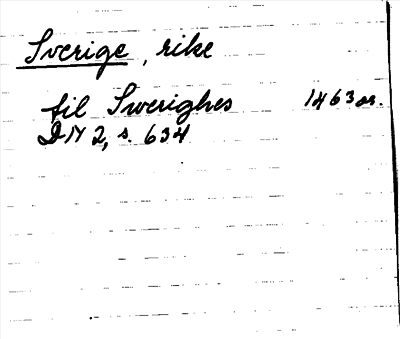 Sverige, rike
til Swerighes 1463 or.
DN 2, s. 634